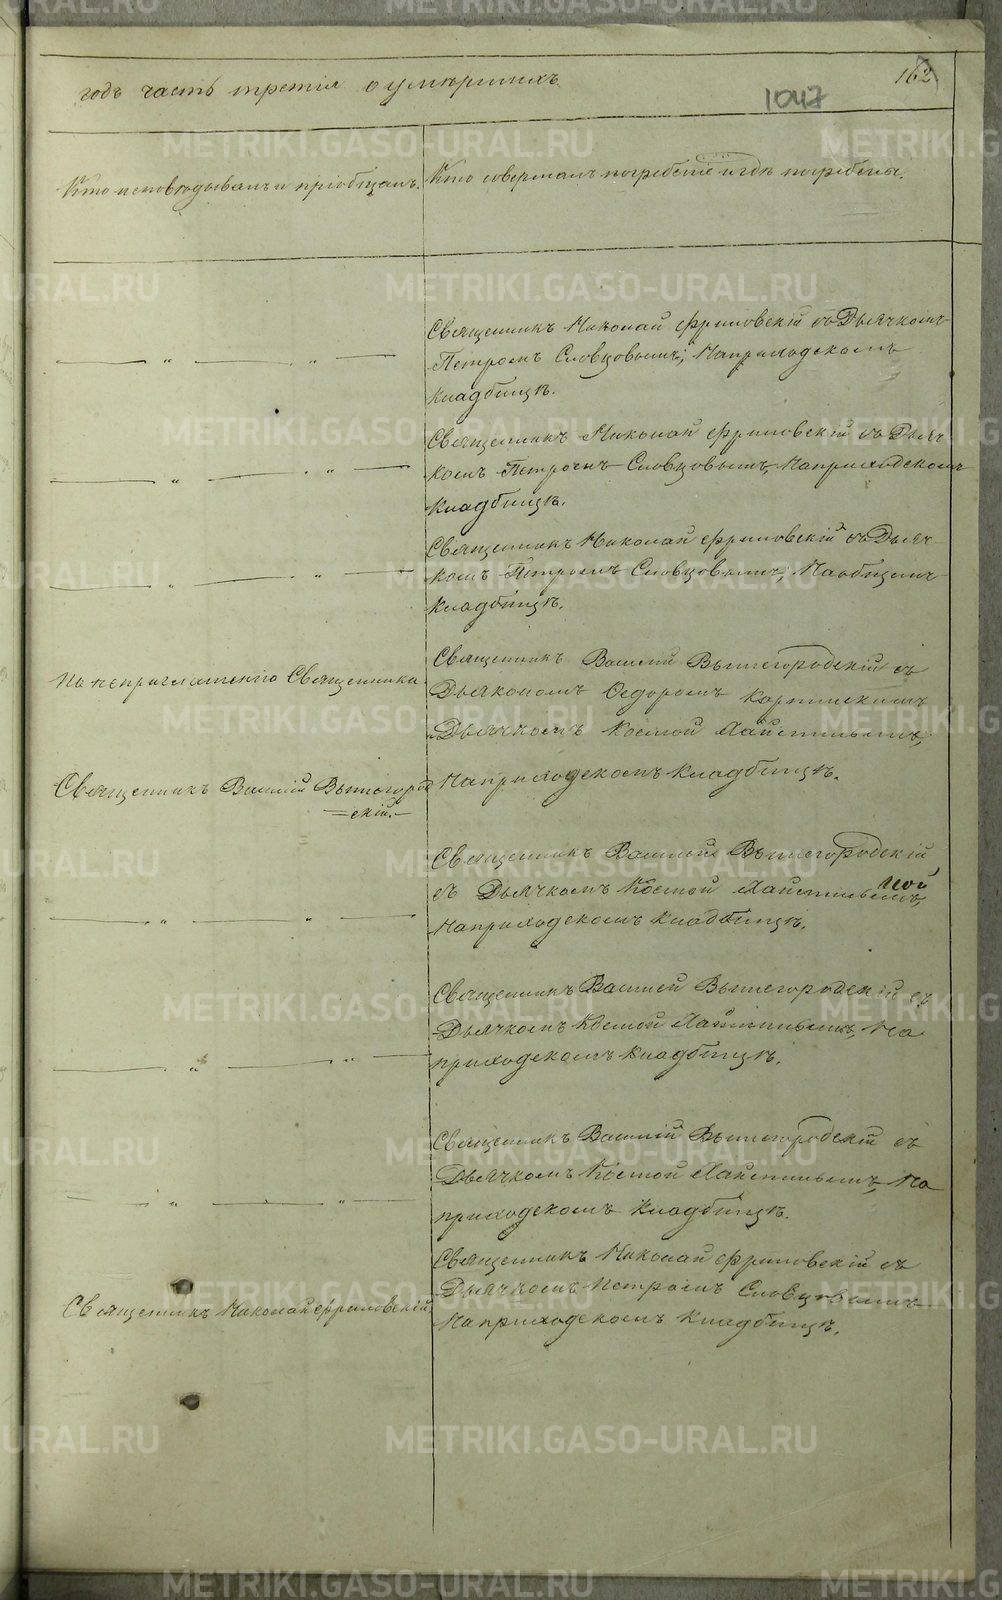 годъ часть третія о умершихъ
162
1047
Кто исповѣдывалъ и пріобщалъ.
Кто совершалъ погребеніе и гдѣ погребены.
Священникъ Николай Фриловскій съ Дьячкомъ
Петромъ Словцовымъ, На приходскомъ
кладбищѣ.
Священникъ Николай Фриловскій съ Дьяч
комъ Петромъ Словцовымъ, На приходскомъ
кладбищѣ.
Священникъ Николай Фриловскій съ Дьяч
комъ Петромъ Словцовымъ, На общемъ
кладбищѣ.
По неприглашенію Священника
Священникъ Василій Вышегородскій съ
Дьякономъ Ѳедоромъ
Дьячкомъ Космой
На приходскомъ кладбищѣ.
Священникъ Василій Вышегород
=скій.-
Священникъ Василій Вышегородскій
съ Дьячкомъ Космой
На приходскомъ кладбищѣ.
Священникъ Василій Вышегородскій съ
Дьячкомъ Космой На
приходскомъ кладбищѣ.
Священникъ Василій Вышегородскій съ
Дьячкомъ Космой На
приходскомъ кладбищѣ.
Священникъ Николай Фриловскій
Священникъ Николай Фриловскій съ
Дьячкомъ Петромъ Словцовымъ
На приходскомъ кладбищѣ.
METRIKI.GASO-URAL.RU